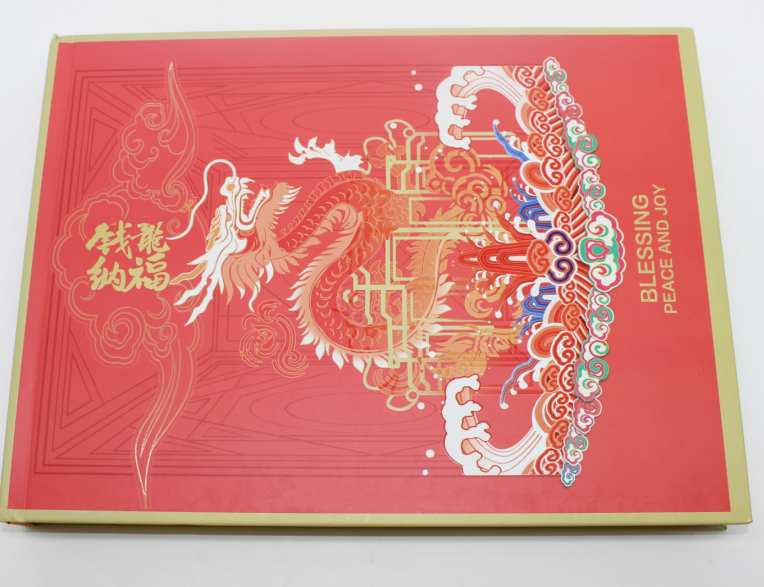 钱龍
纳福
BLESSING
PEACE AND JOY